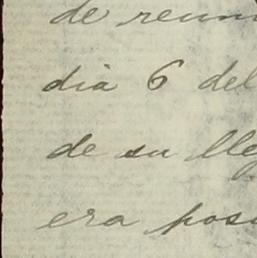 de reun
dia 6 del
de su lleg
era pos